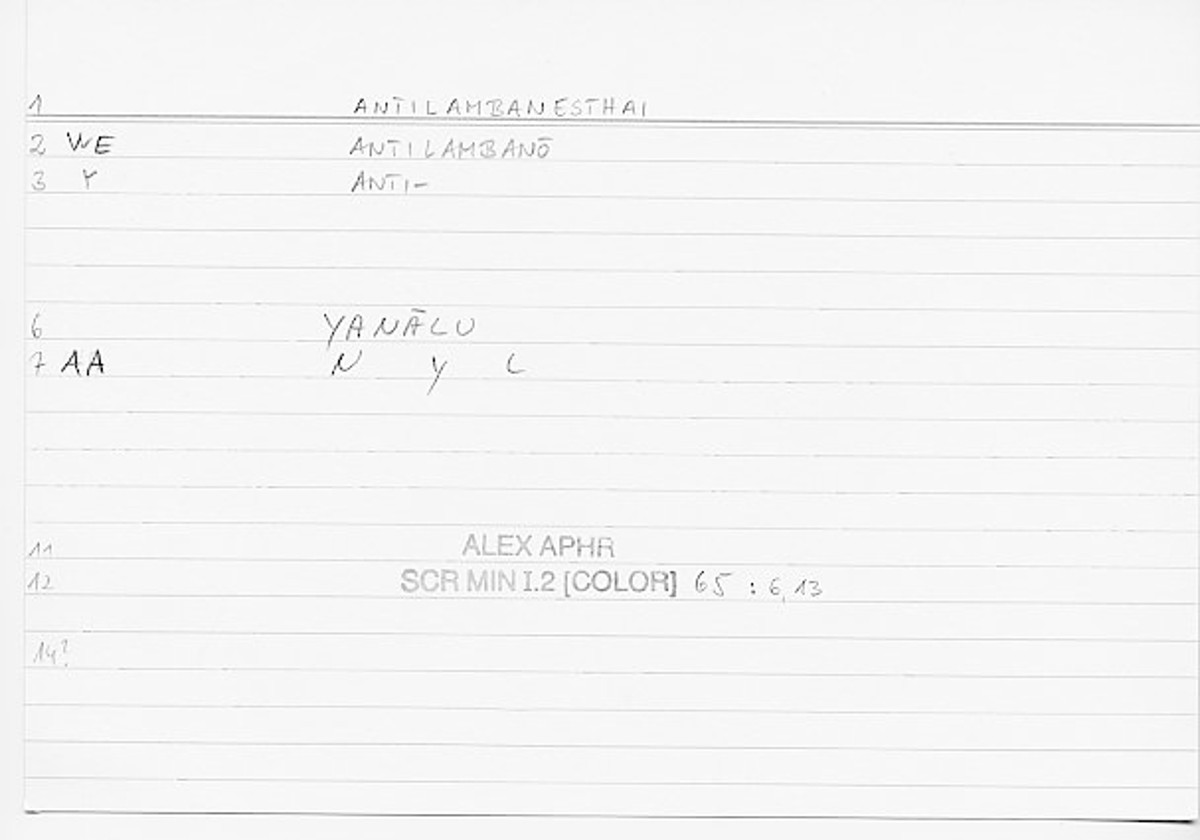 1 ANTILAMBANESTHAI
2 WE ANTILAMBANŌ
3 Y ANTI-
6 YANĀLU
7 AA N Y L
11 ALEX APHR
12 SCR MIN I.2 [COLOR] 65 : 6, 13
14?